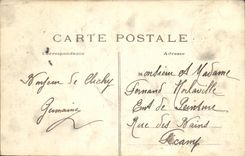 CARTE POSTALE
Correspondance
Adresse
Bonjour de Clichy
Germaine
Monsieur et Madame
Fernand Morlaville
Ent de Peinture
Rue des Bains
Fécamp